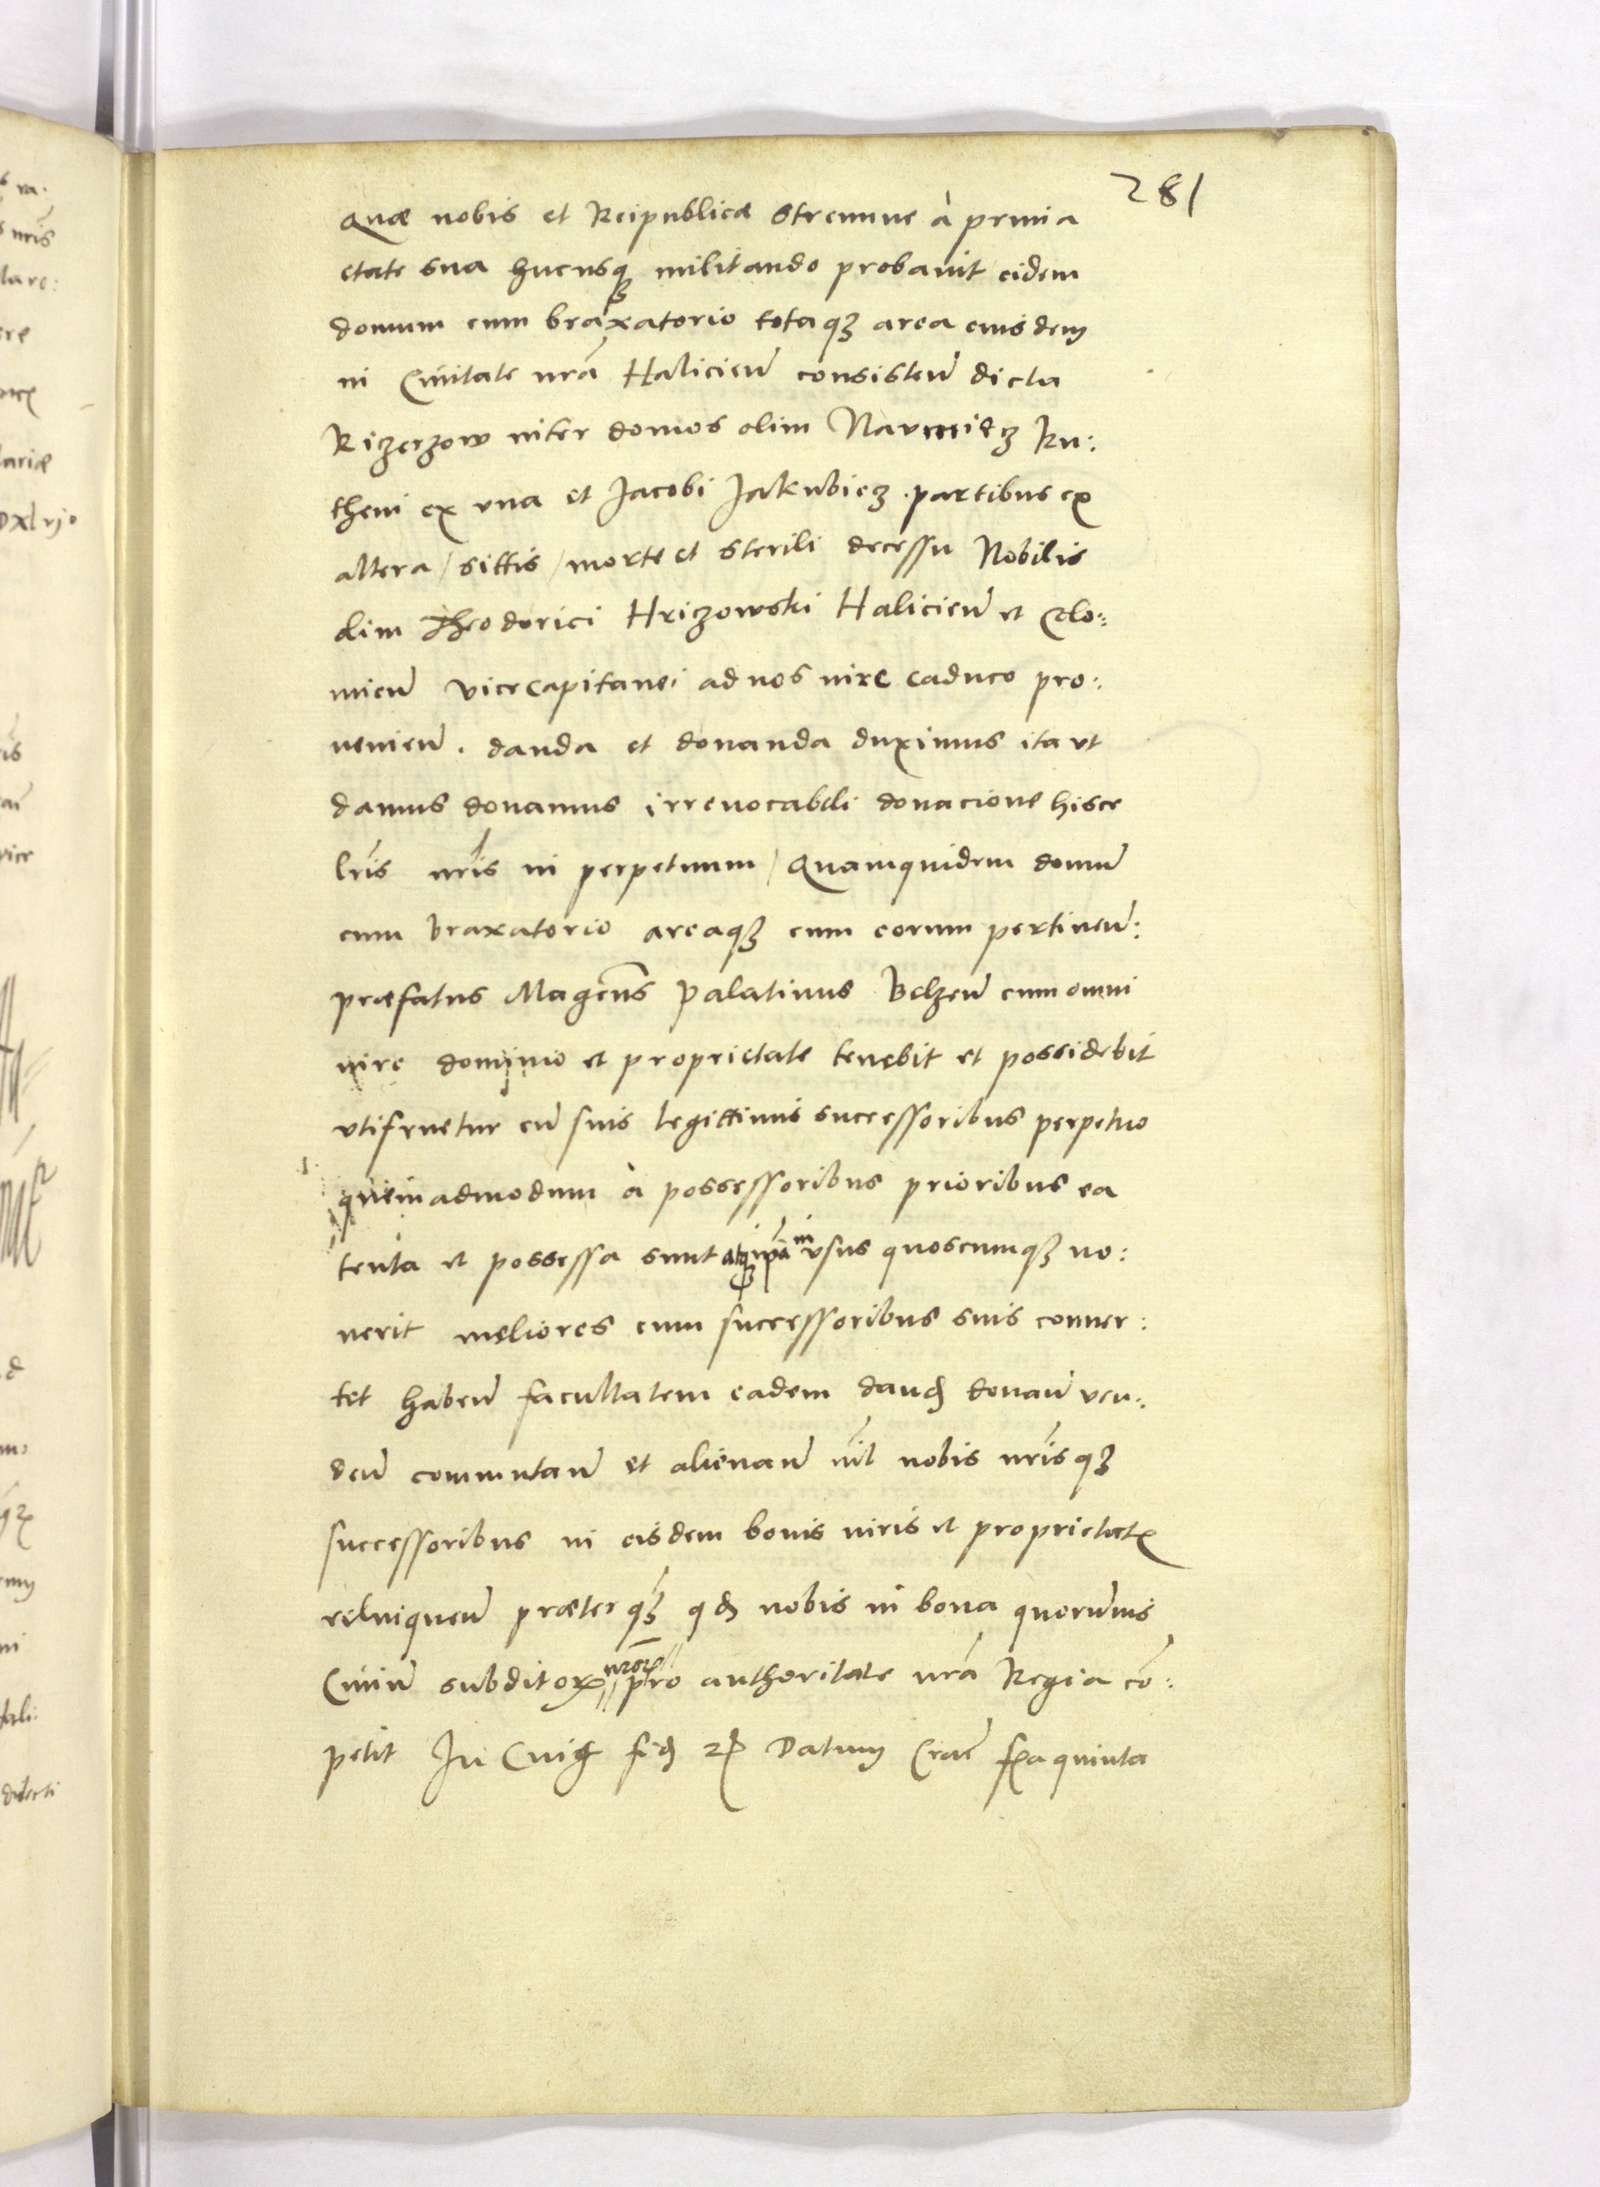 281
Quæ nobis et Reipublicæ strenuue à primia
etate sua hucusqꝫ militando probauit eidem
domum cum braxatorio totaqꝫ area eiusdem
in Ciuitate nrã Halicieñ consisteñ dicta
Rizerzow inter domos olim Naumiecz Ru:
theni ex vna et Jacobi Jakubiecz partibus ex
altera / sittis / morte et sterili decessu Nobilis
olim Theodorici Hriczowski Halicieñ et Colo:
mieñ Vicecapitanei ad nos iure caduco pro:
uenieñ. danda et donanda duximus ita vt
damus donamus irreuocabili donacione hisce
lrĩs nrĩs in perpetuum / Quamquidem domũ
cum braxatorio areaqꝫ cum eorum pertineñ:
præfatus Magcũs Palatinus Belzeñ cum omni
iure dominio et proprietate tenebit et possidebit
vtifruetur cũ suis legittimis successoribus perpetuo
quemadmodum à possessoribus prioribus ea
tenta et possessa sunt atqꝫ ipã in vsus quoscumqꝫ uo:
uerit meliores cum successoribus suis conuer:
tet habeñ facultatem eadem dand donañ ven:
deñ commutañ et alienañ nĩl nobis nrĩsqꝫ
successoribus in eisdem bonis iuris et proprietatꝭ
relinqueñ præterqꝫ qd nobis in bona quorũuis
Ciuiũ subditoꝝ nrõꝝ pro authoritate nrã Regia cõ:
petit In Cuiꝰ fid ꝛc Datum Crac̃ fꝭa quinta